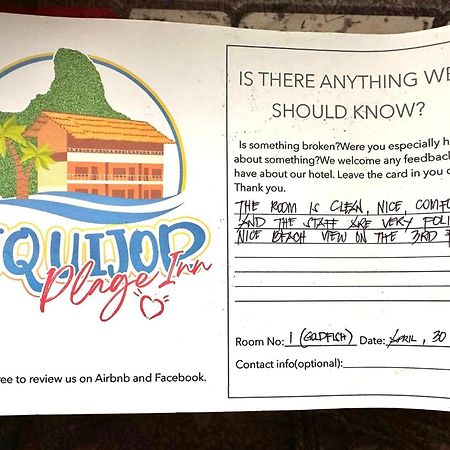 IQUIJOD
Plage Inn
ree to review us on Airbnb and Facebook.
IS THERE ANYTHING WE
SHOULD KNOW?
Is something broken?Were you especially h
about something?We welcome any feedback
have about our hotel. Leave the card in you
Thank you.
THE ROOM IS CLEAN, NICE, COMFO
AND THE STAFF ARE VERY POLI
NICE BEACH VIEW ON THE 3RD F
Room No: 1 (GOLDFISH) Date: APRIL, 30
Contact info(optional):